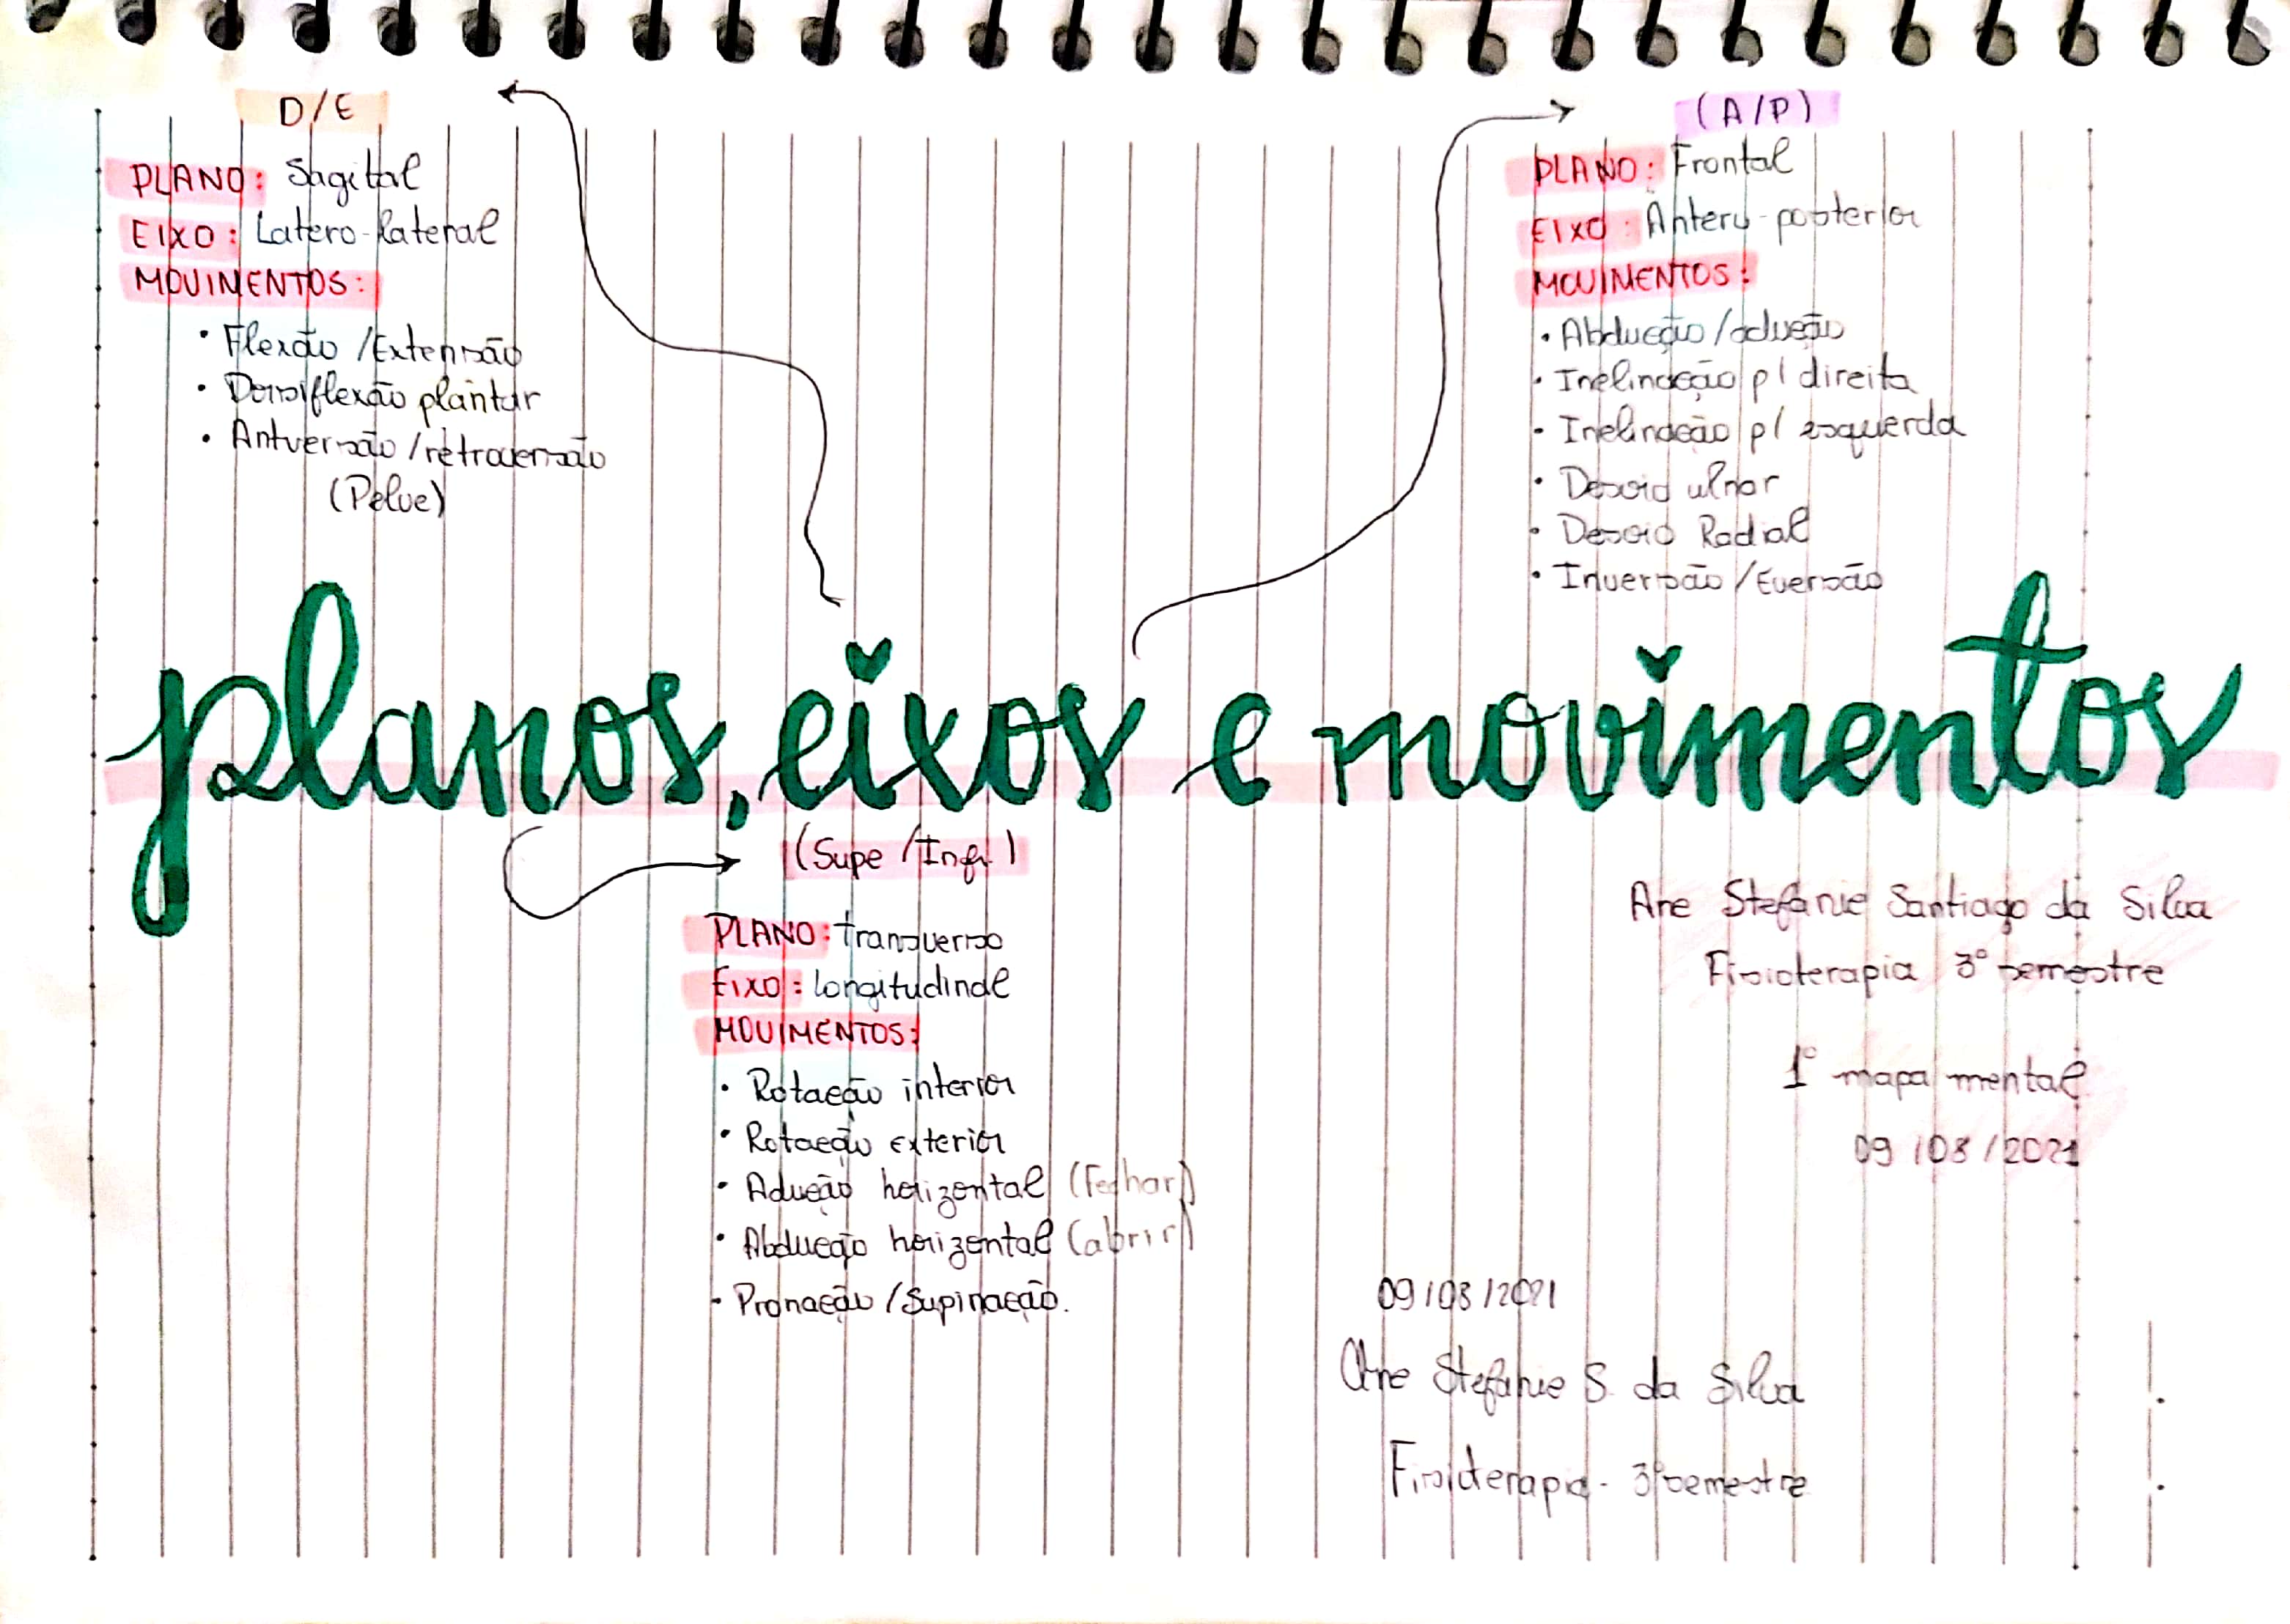 D/E
PLANO: Sagital
EIXO: Latero-lateral
MOVIMENTOS:
• Flexão/Extensão
• Dorsiflexão plantar
• Antversão/retroversão
(Pelve)
(A/P)
PLANO: Frontal
EIXO: Antero-posterior
MOVIMENTOS:
• Abdução/adução
• Inclinação p/ direita
• Inclinação p/ esquerda
• Desvio ulnar
• Desvio Radial
• Inversão/Eversão
planos, eixos e movimentos
(Supe/Infr)
PLANO: transverso
EIXO: longitudinal
MOVIMENTOS:
• Rotação interior
• Rotação exterior
• Adução horizontal (Fechar)
• Abdução horizontal (abrir)
• Pronação/Supinação.
Ane Stefanie Santiago da Silva
Fisioterapia 3º semestre
1º mapa mental
09/03/2021
09/03/2021
Ane Stefanie S. da Silva
Fisioterapia - 3º semestre